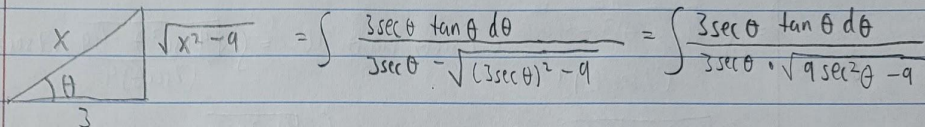 x θ 3 √(x² - 9) = ∫ 3secθ tanθ dθ / (3secθ - √((3secθ)² - 9)) = ∫ 3secθ tanθ dθ / (3secθ · √(9sec²θ - 9))